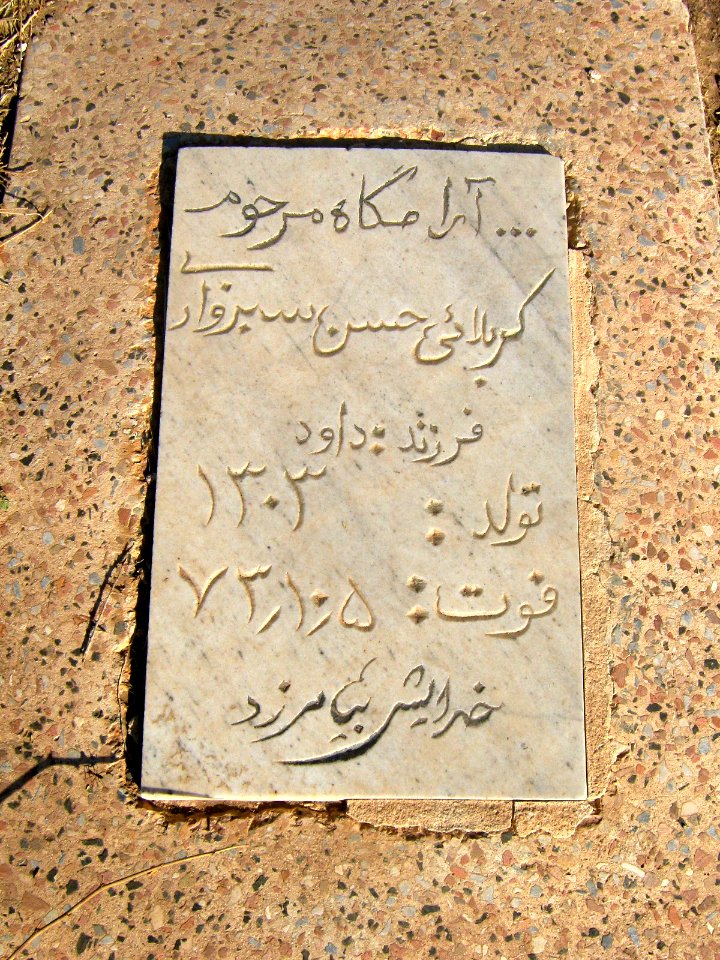 ... آرامگاه مرحوم
کربلائی حسن سبزواری
فرزند : داود
تولد : ۱۳۰۳
فوت : ۷۳٫۱۰٫۵
خدایش بیامرزد